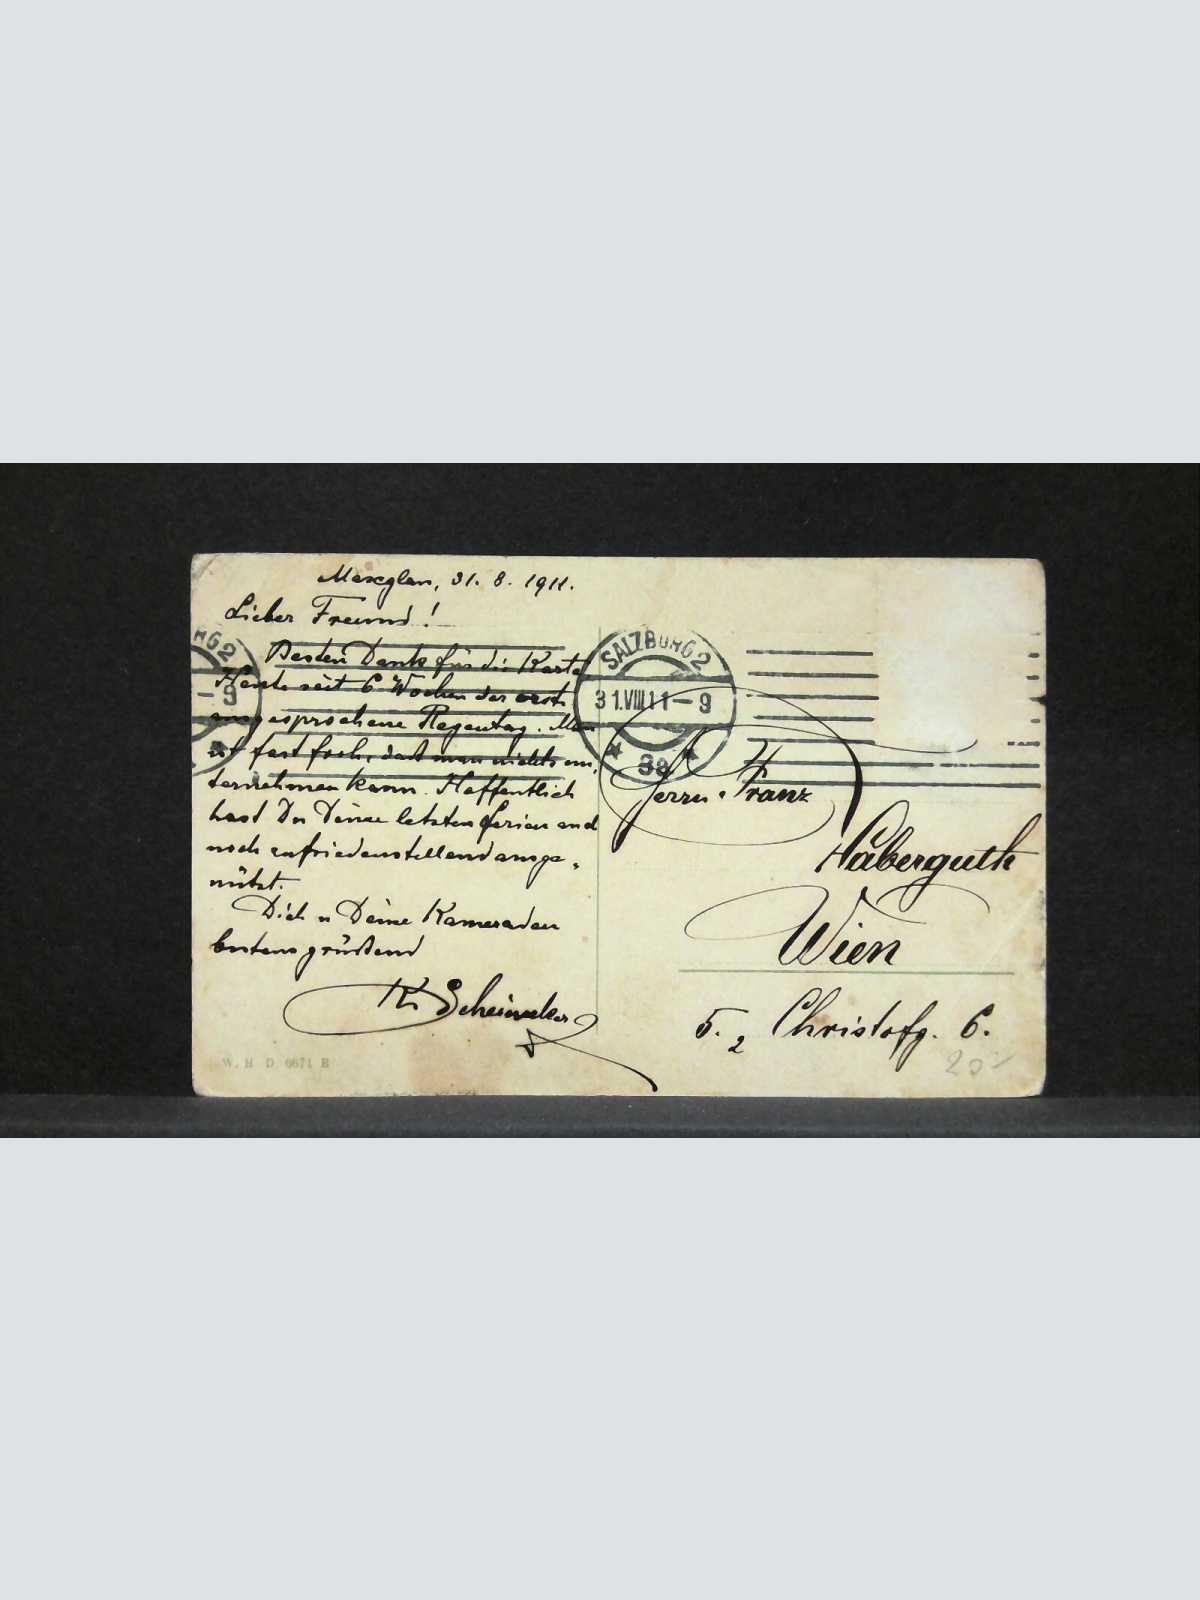 Maxglan, 31. 8. 1911.
Lieber Freund!
Besten Dank für die Karte
Heute seit 6 Wochen der erste
ausgesprochene Regentag. Man
ist fast froh, daß man nichts un„
ternehmen kann. Hoffentlich
hast Du Deine letzten Ferien
noch zufriedenstellend ausge„
nützt.
Dich u Deine Kameraden
bestens grüßend
K.
W. H D. 6671 B
RG 2
- 9
SALZBURG 2
31.VIII.11-9
Herrn Franz
Haberguth
Wien
5. 2 Christofg. 6.
20-